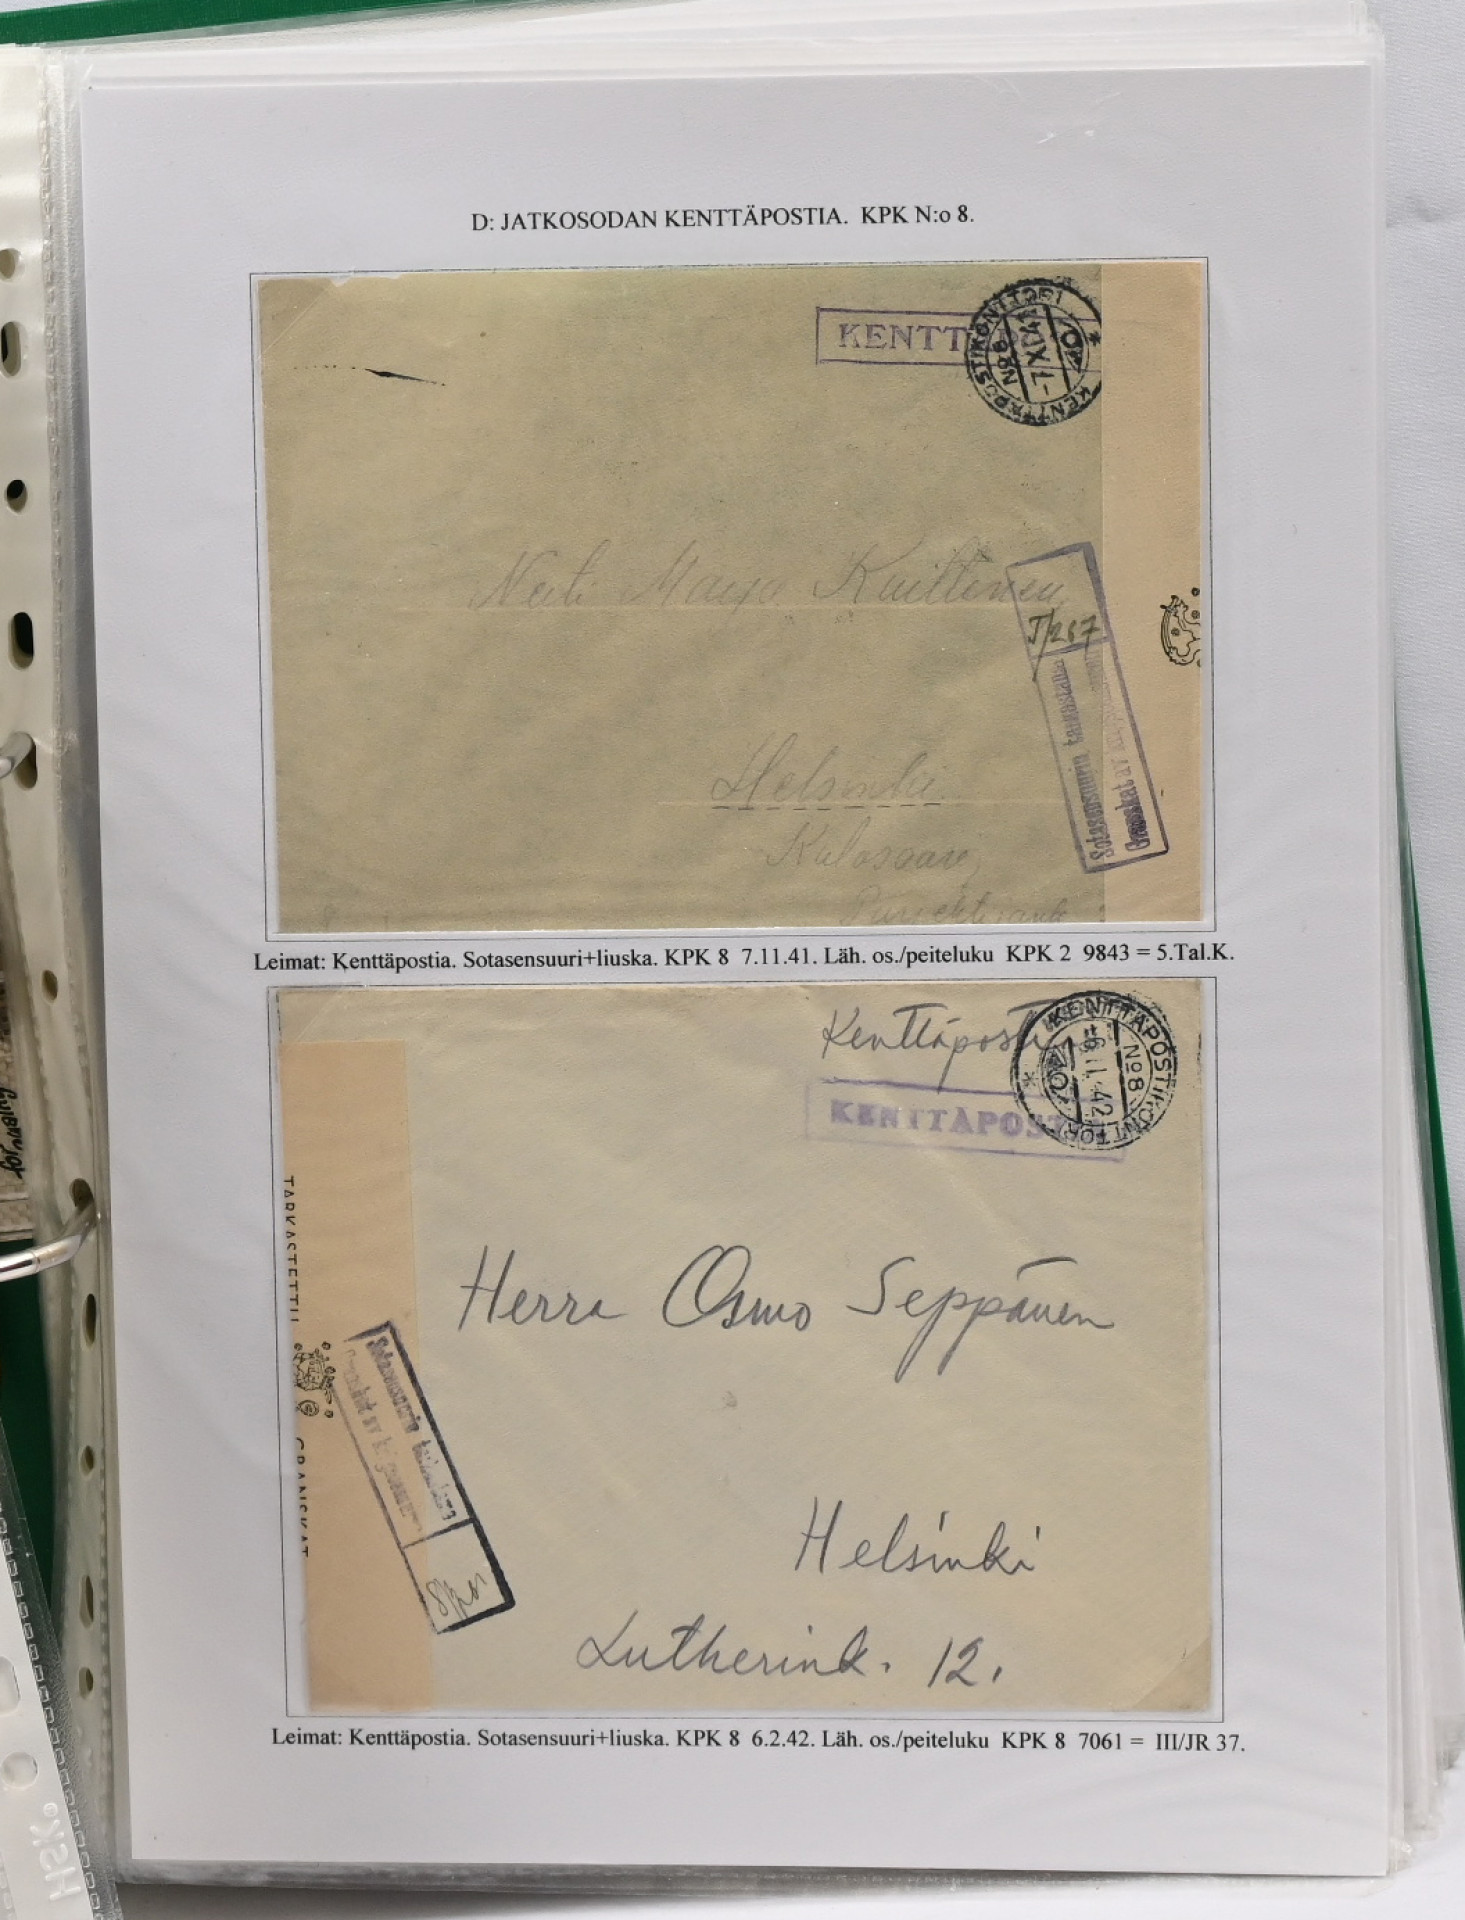 D: JATKOSODAN KENTTÄPOSTIA. KPK N:o 8.
KENTT
KENTTÄPOSTIKONTTORI
No 8
-7.XI.41
Neiti Maija Kuittinen
J/267
Sotasensuurin tarkastama
Granskat av
Helsinki
Kulosaari
Leimat: Kenttäpostia. Sotasensuuri+liuska. KPK 8 7.11.41. Läh. os./peiteluku KPK 2 9843 = 5.Tal.K.
Kenttäposti
KENTTÄPOST
KENTTÄPOSTIKONTTORI
No 8
TARKASTETTU
GRANSKAT
Sotasensuurin tarkastama
Herra Osmo Seppänen
Helsinki
Lutherink. 12.
Leimat: Kenttäpostia. Sotasensuuri+liuska. KPK 8 6.2.42. Läh. os./peiteluku KPK 8 7061 = III/JR 37.
HSK